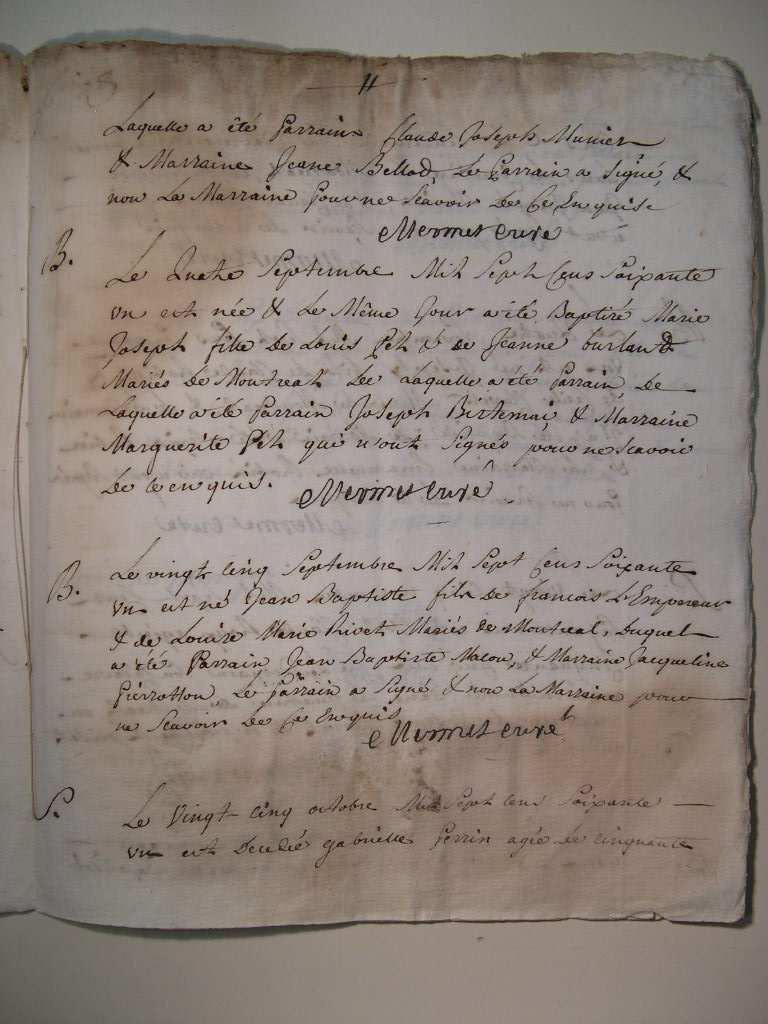 11
Laquelle a été Parrain Claude Joseph Munier
& Marraine Jeane Bellod, Le Parrain a signé, &
non La Marraine pour ne sçavoir De Ce Enquise
Mermet curé
B.
Le Quatre Septembre Mil Sept Cens Soixante
un est née & Le Même Jour a été Baptiré Marie
Joseph fille De Louis & de Jeanne
Mariés de Montreal De Laquelle a été Parrain De
Laquelle a été Parrain Joseph & Marraine
Marguerite qui n'ont Signés pour ne Scavoir
De ce enquis. Mermet curé
B.
Le vingt cinq Septembre Mil Sept Cens Soixante
un est né Jean Baptiste fils De francois L'Empereur
& de Louise Marie Rivet Mariés de Montreal, Duquel
a été Parrain Jean Baptiste & Marraine Jacqueline
Pierrotton, Le Parrain a Signé & non La Marraine pour
ne Scavoir De Ce Enquis
Mermet curé
S.
Le Vingt cinq octobre Mil Sept Cens Soixante
un est Decedé gabrielle Perrin agée de cinquante